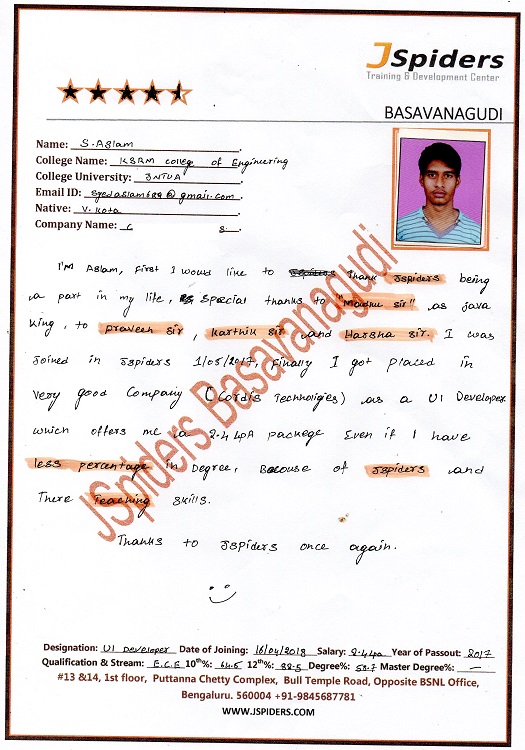 JSpiders
Training & Development Center
BASAVANAGUDI
Name: S. Aslam
College Name: KSRM college of Engineering
College University: JNTUA
Email ID: syedaslam689@gmail.com
Native: V. Kota
Company Name: C S.
I'm Aslam, First I would like to thank Jspiders being
a part in my life, Special thanks to "Madhu sir" as java
King, to praveen sir, karthik sir and Harsha sir. I was
joined in Jspiders 1/05/2017, Finally I got placed in
very good Company (Cordis Technolgies) as a UI Developer
which offers me a 2.4 LPA packege Even if I have
less percentage in Degree, Becouse of Jspiders and
There Teaching skills.
Thanks to JSpiders once again.
JSpiders Basavanagudi
Designation: UI Developer Date of Joining: 16/04/2018 Salary: 2.4 LPA Year of Passout: 2017
Qualification & Stream: E.C.E 10th%: 64.5 12th%: 88.5 Degree%: 58.7 Master Degree%: —
#13 &14, 1st floor, Puttanna Chetty Complex, Bull Temple Road, Opposite BSNL Office,
Bengaluru. 560004 +91-9845687781
WWW.JSPIDERS.COM